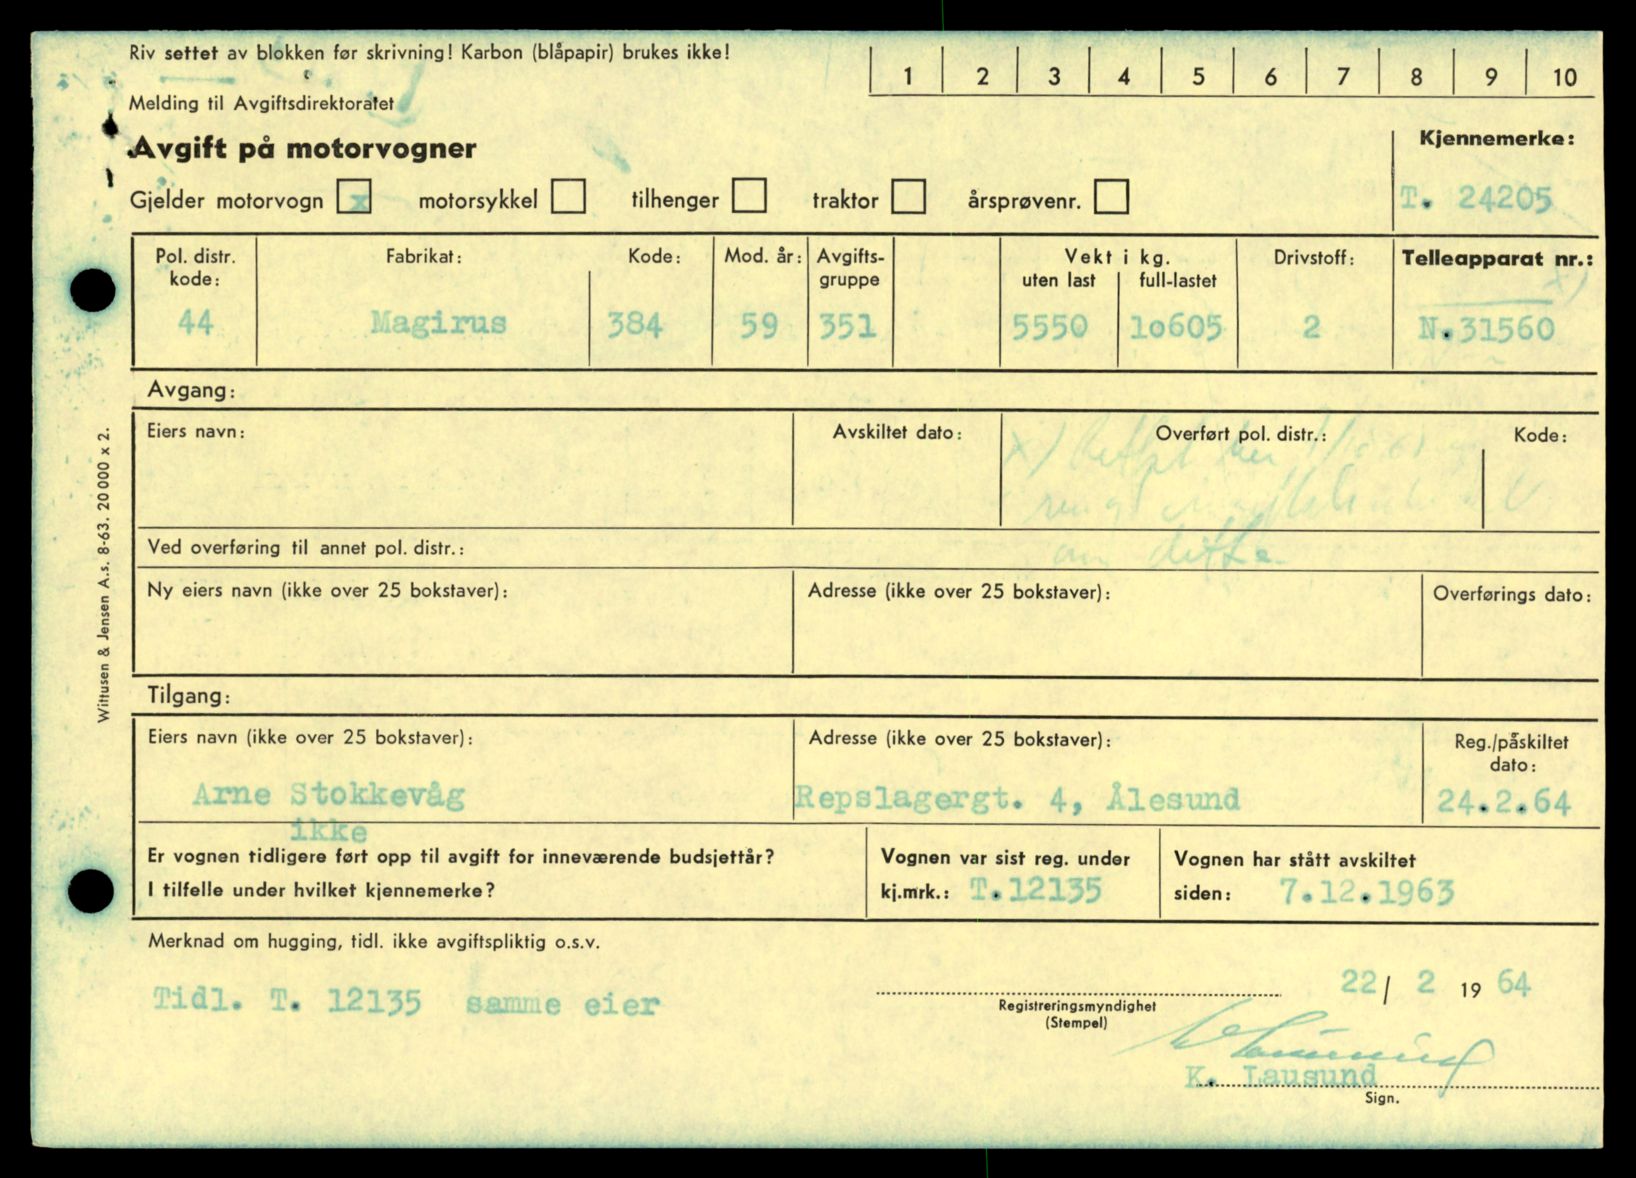 Riv settet av blokken før skrivning! Karbon (blåpapir) brukes ikke!
1 2 3 4 5 6 7 8 9 10
Melding til Avgiftsdirektoratet
Avgift på motorvogner
Kjennemerke:
Gjelder motorvogn x motorsykkel tilhenger traktor årsprøvenr.
T. 24205
Pol. distr. kode:
Fabrikat:
Kode:
Mod. år:
Avgifts-
gruppe
Vekt i kg.
uten last full-lastet
Drivstoff:
Telleapparat nr.:
x)
44 Magirus 384 59 351 5550 10605 2 N.31560
Avgang:
Eiers navn:
Avskiltet dato:
Overført pol. distr.:
Kode:
x)
om dette
Ved overføring til annet pol. distr.:
Ny eiers navn (ikke over 25 bokstaver):
Adresse (ikke over 25 bokstaver):
Overførings dato:
Tilgang:
Eiers navn (ikke over 25 bokstaver):
Adresse (ikke over 25 bokstaver):
Reg./påskiltet
dato:
Arne Stokkevåg
Repslagergt. 4, Ålesund
24.2.64
ikke
Er vognen tidligere ført opp til avgift for inneværende budsjettår?
I tilfelle under hvilket kjennemerke?
Vognen var sist reg. under
kj.mrk.: T.12135
Vognen har stått avskiltet
siden: 7.12.1963
Merknad om hugging, tidl. ikke avgiftspliktig o.s.v.
Tidl. T. 12135 samme eier
22/ 2 19 64
Registreringsmyndighet
(Stempel)
K. Lausund
Sign.
Wittusen & Jensen A.s. 8-63. 20 000 x 2.